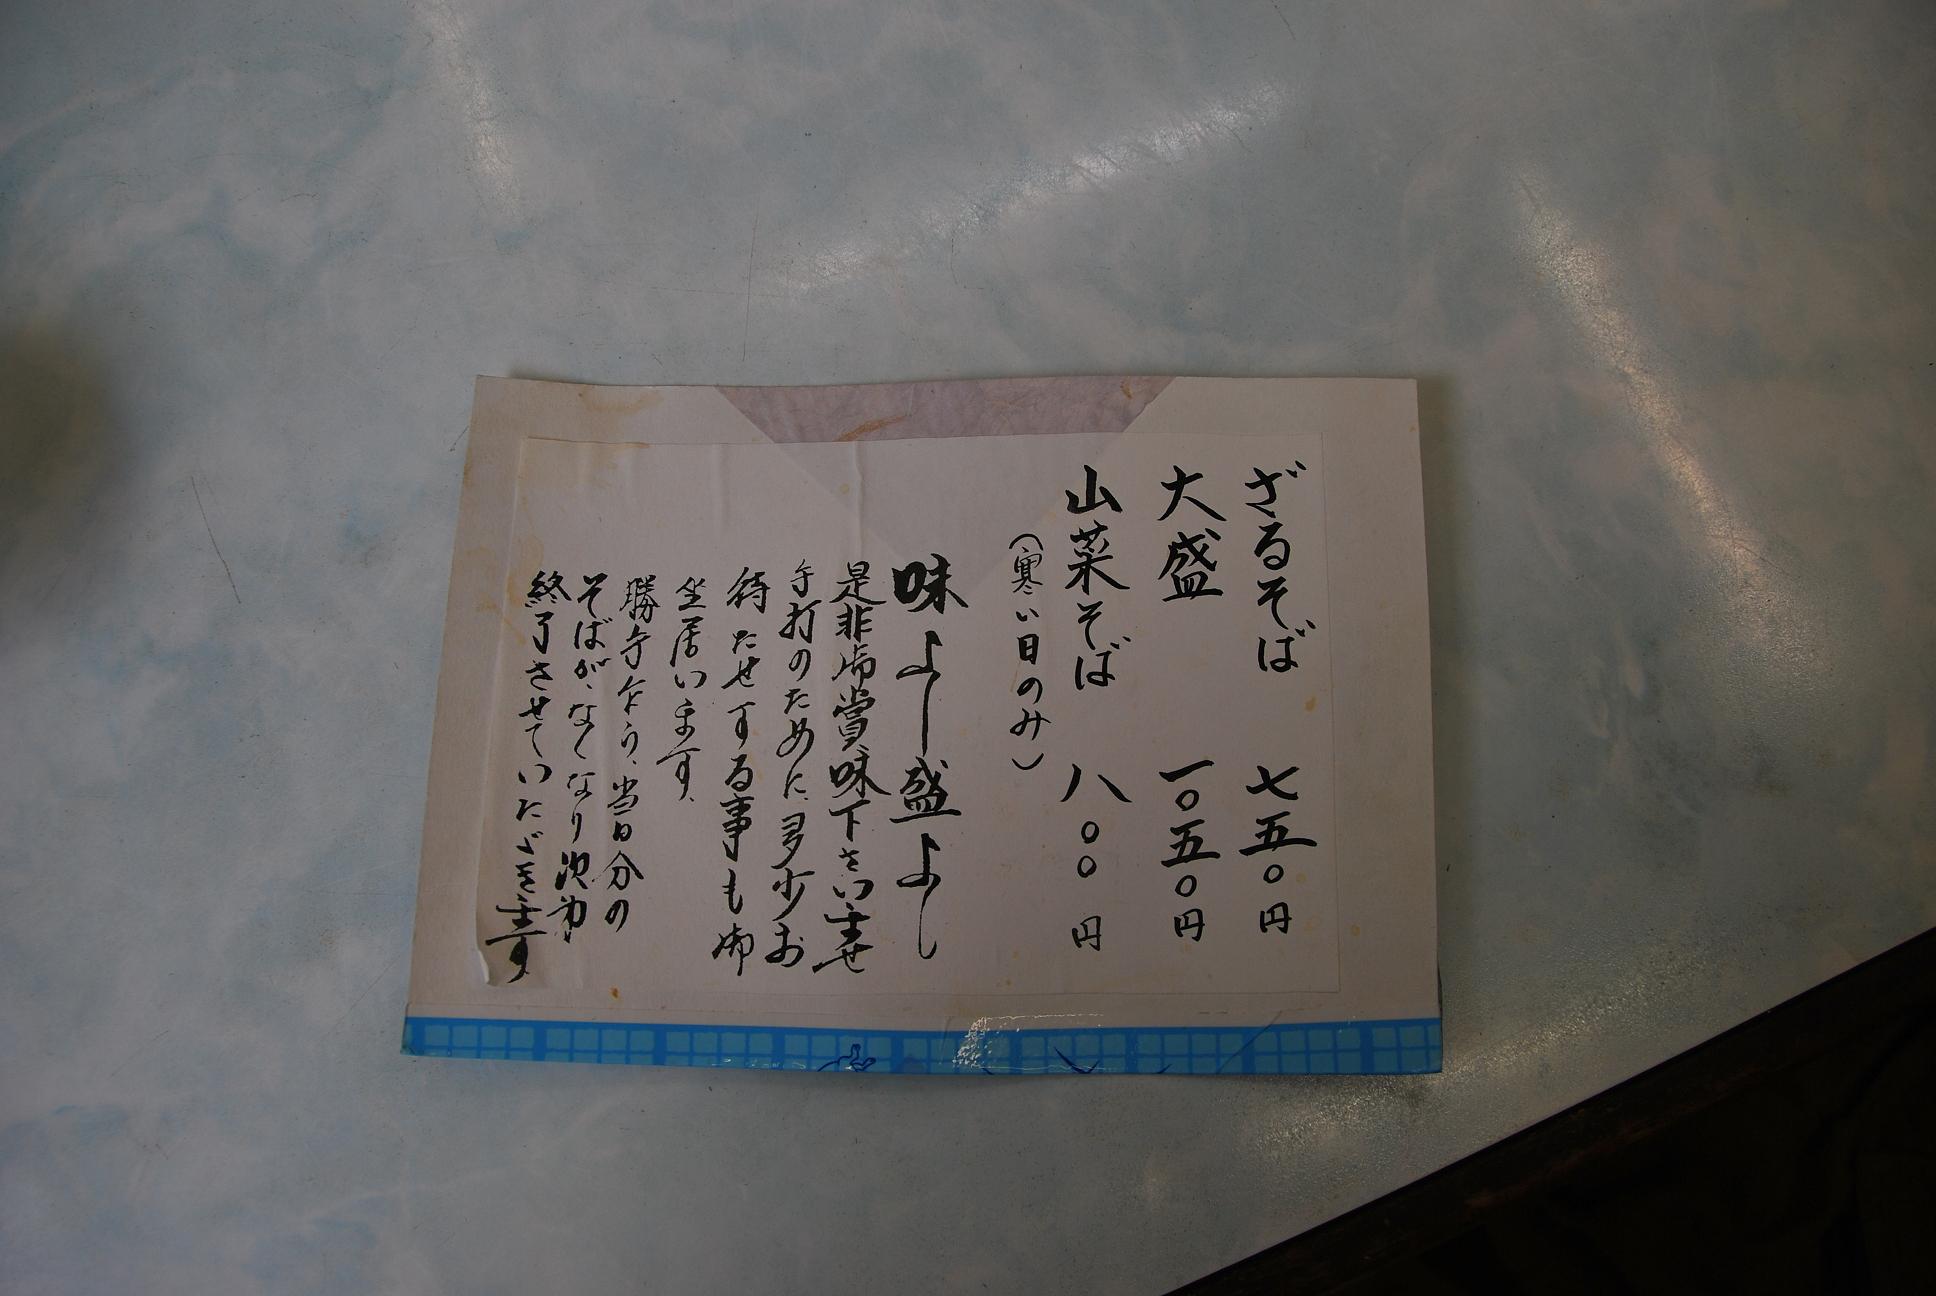 ざるそば 七五〇円
大盛 一〇五〇円
山菜そば 八〇〇円
(寒い日のみ)
味よし盛よし
是非御賞味下さいませ
手打のために、多少お
待たせする事も御
坐居います。
勝手乍ら、当日分の
そばが、なくなり次第
終了させていただきます